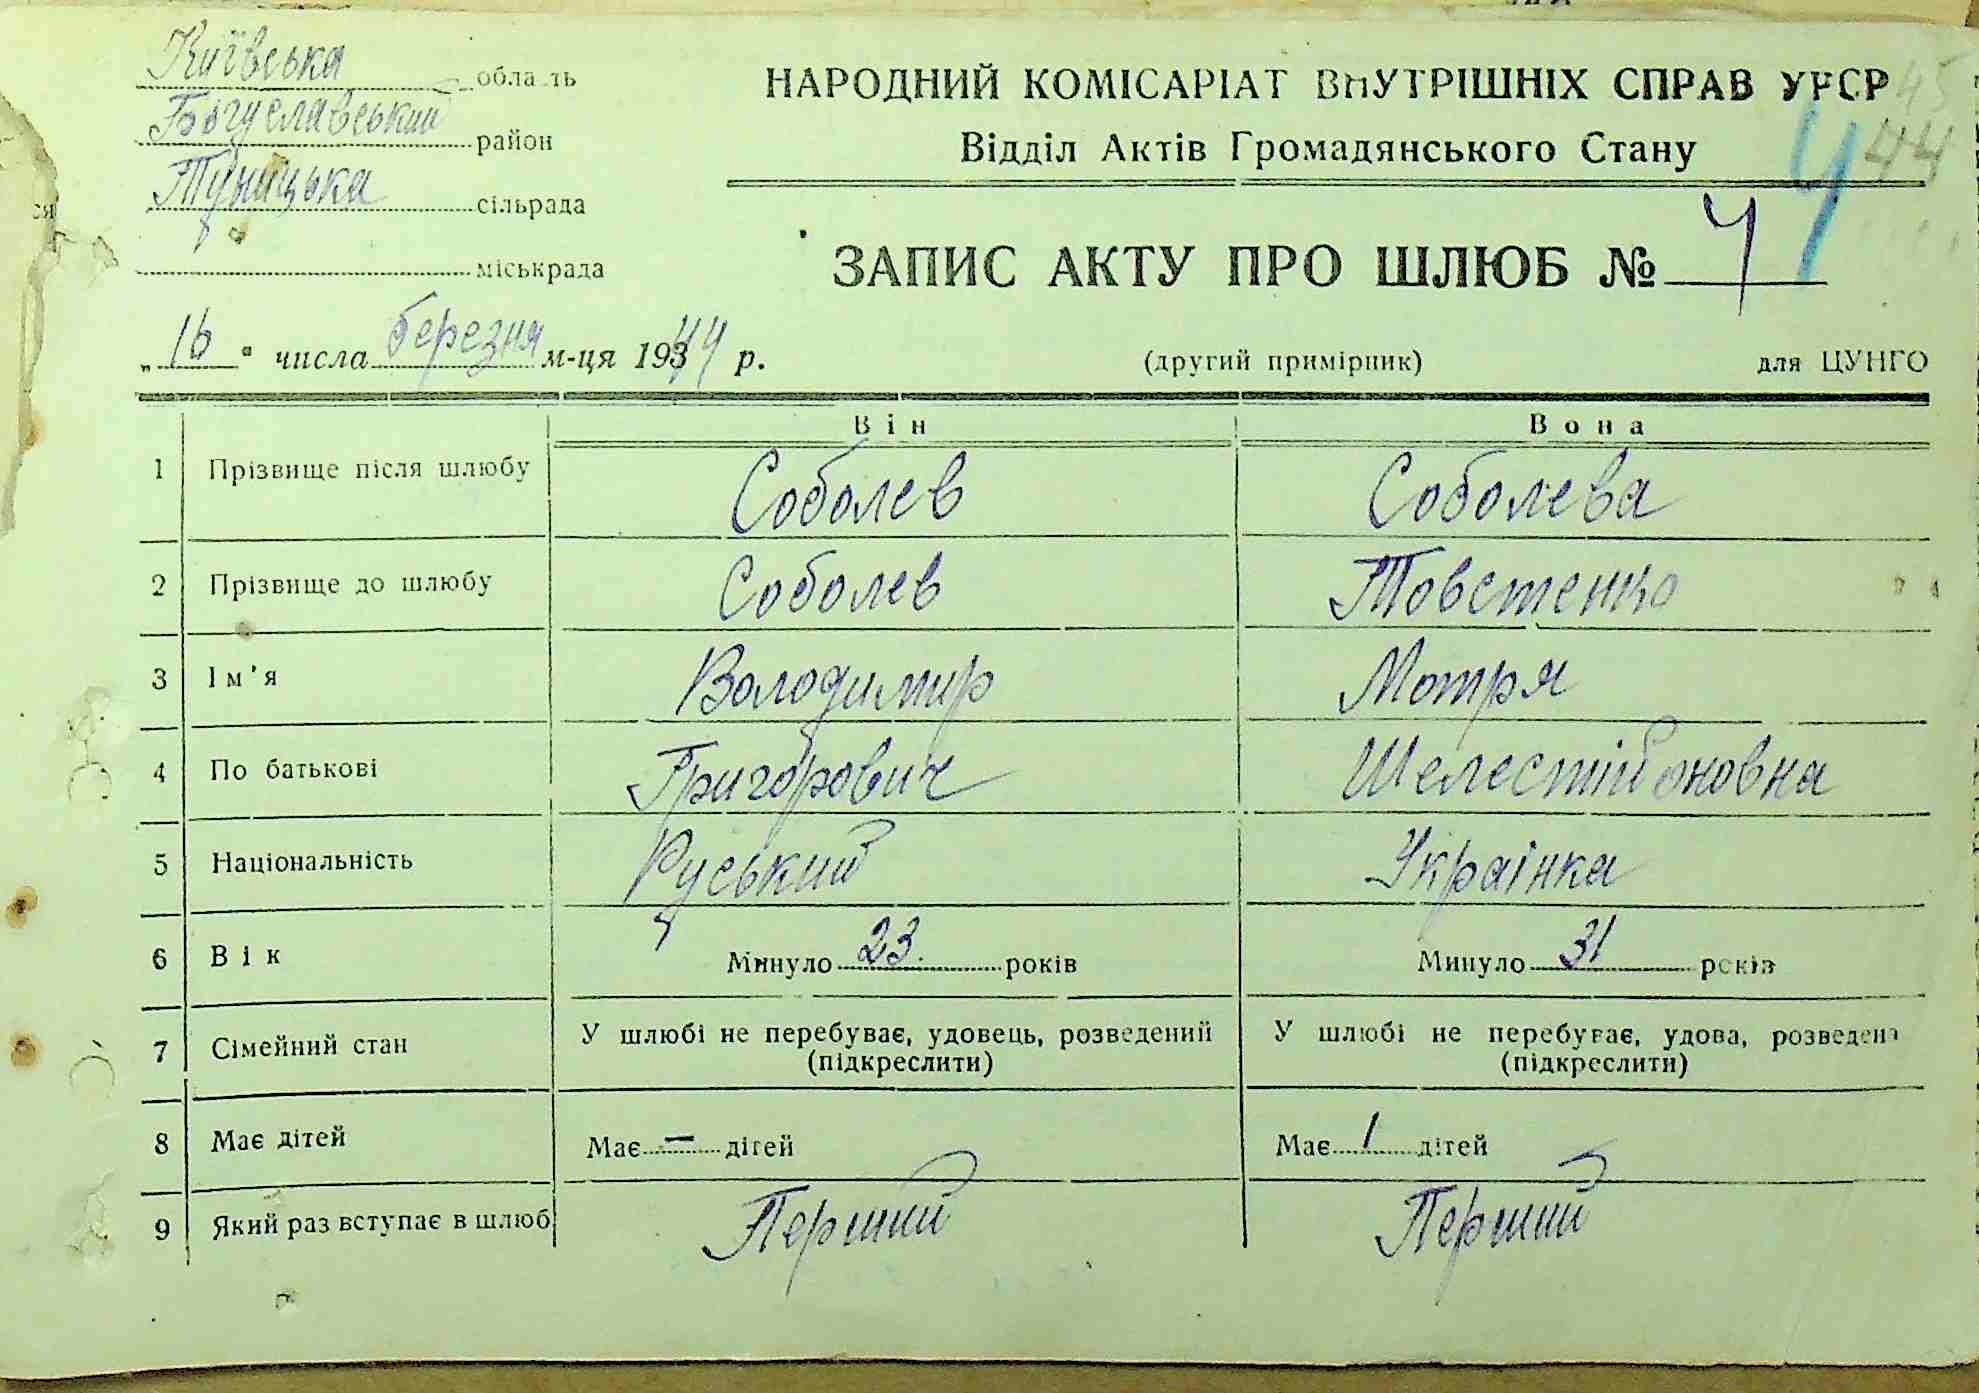 Київська область
Богуславський район
Туницька сільрада
міськрада
НАРОДНИЙ КОМІСАРІАТ ВНУТРІШНІХ СПРАВ УРСР
45
Відділ Актів Громадянського Стану
4 44
ЗАПИС АКТУ ПРО ШЛЮБ № 4
„16“ числа березня м-ця 1944 р.
(другий примірник) для ЦУНГО
Він Вона
1 Прізвище після шлюбу Соболев Соболева
2 Прізвище до шлюбу Соболев Товстенко
3 Ім'я Володимир Мотря
4 По батькові Григорович
5 Національність Руський Украінка
6 Вік Минуло 23 років Минуло 31 років
7 Сімейний стан У шлюбі не перебуває, удовець, розведений У шлюбі не перебуває, удова, розведена
(підкреслити) (підкреслити)
8 Має дітей Має — дітей Має 1 дітей
9 Який раз вступає в шлюб Перший Перший